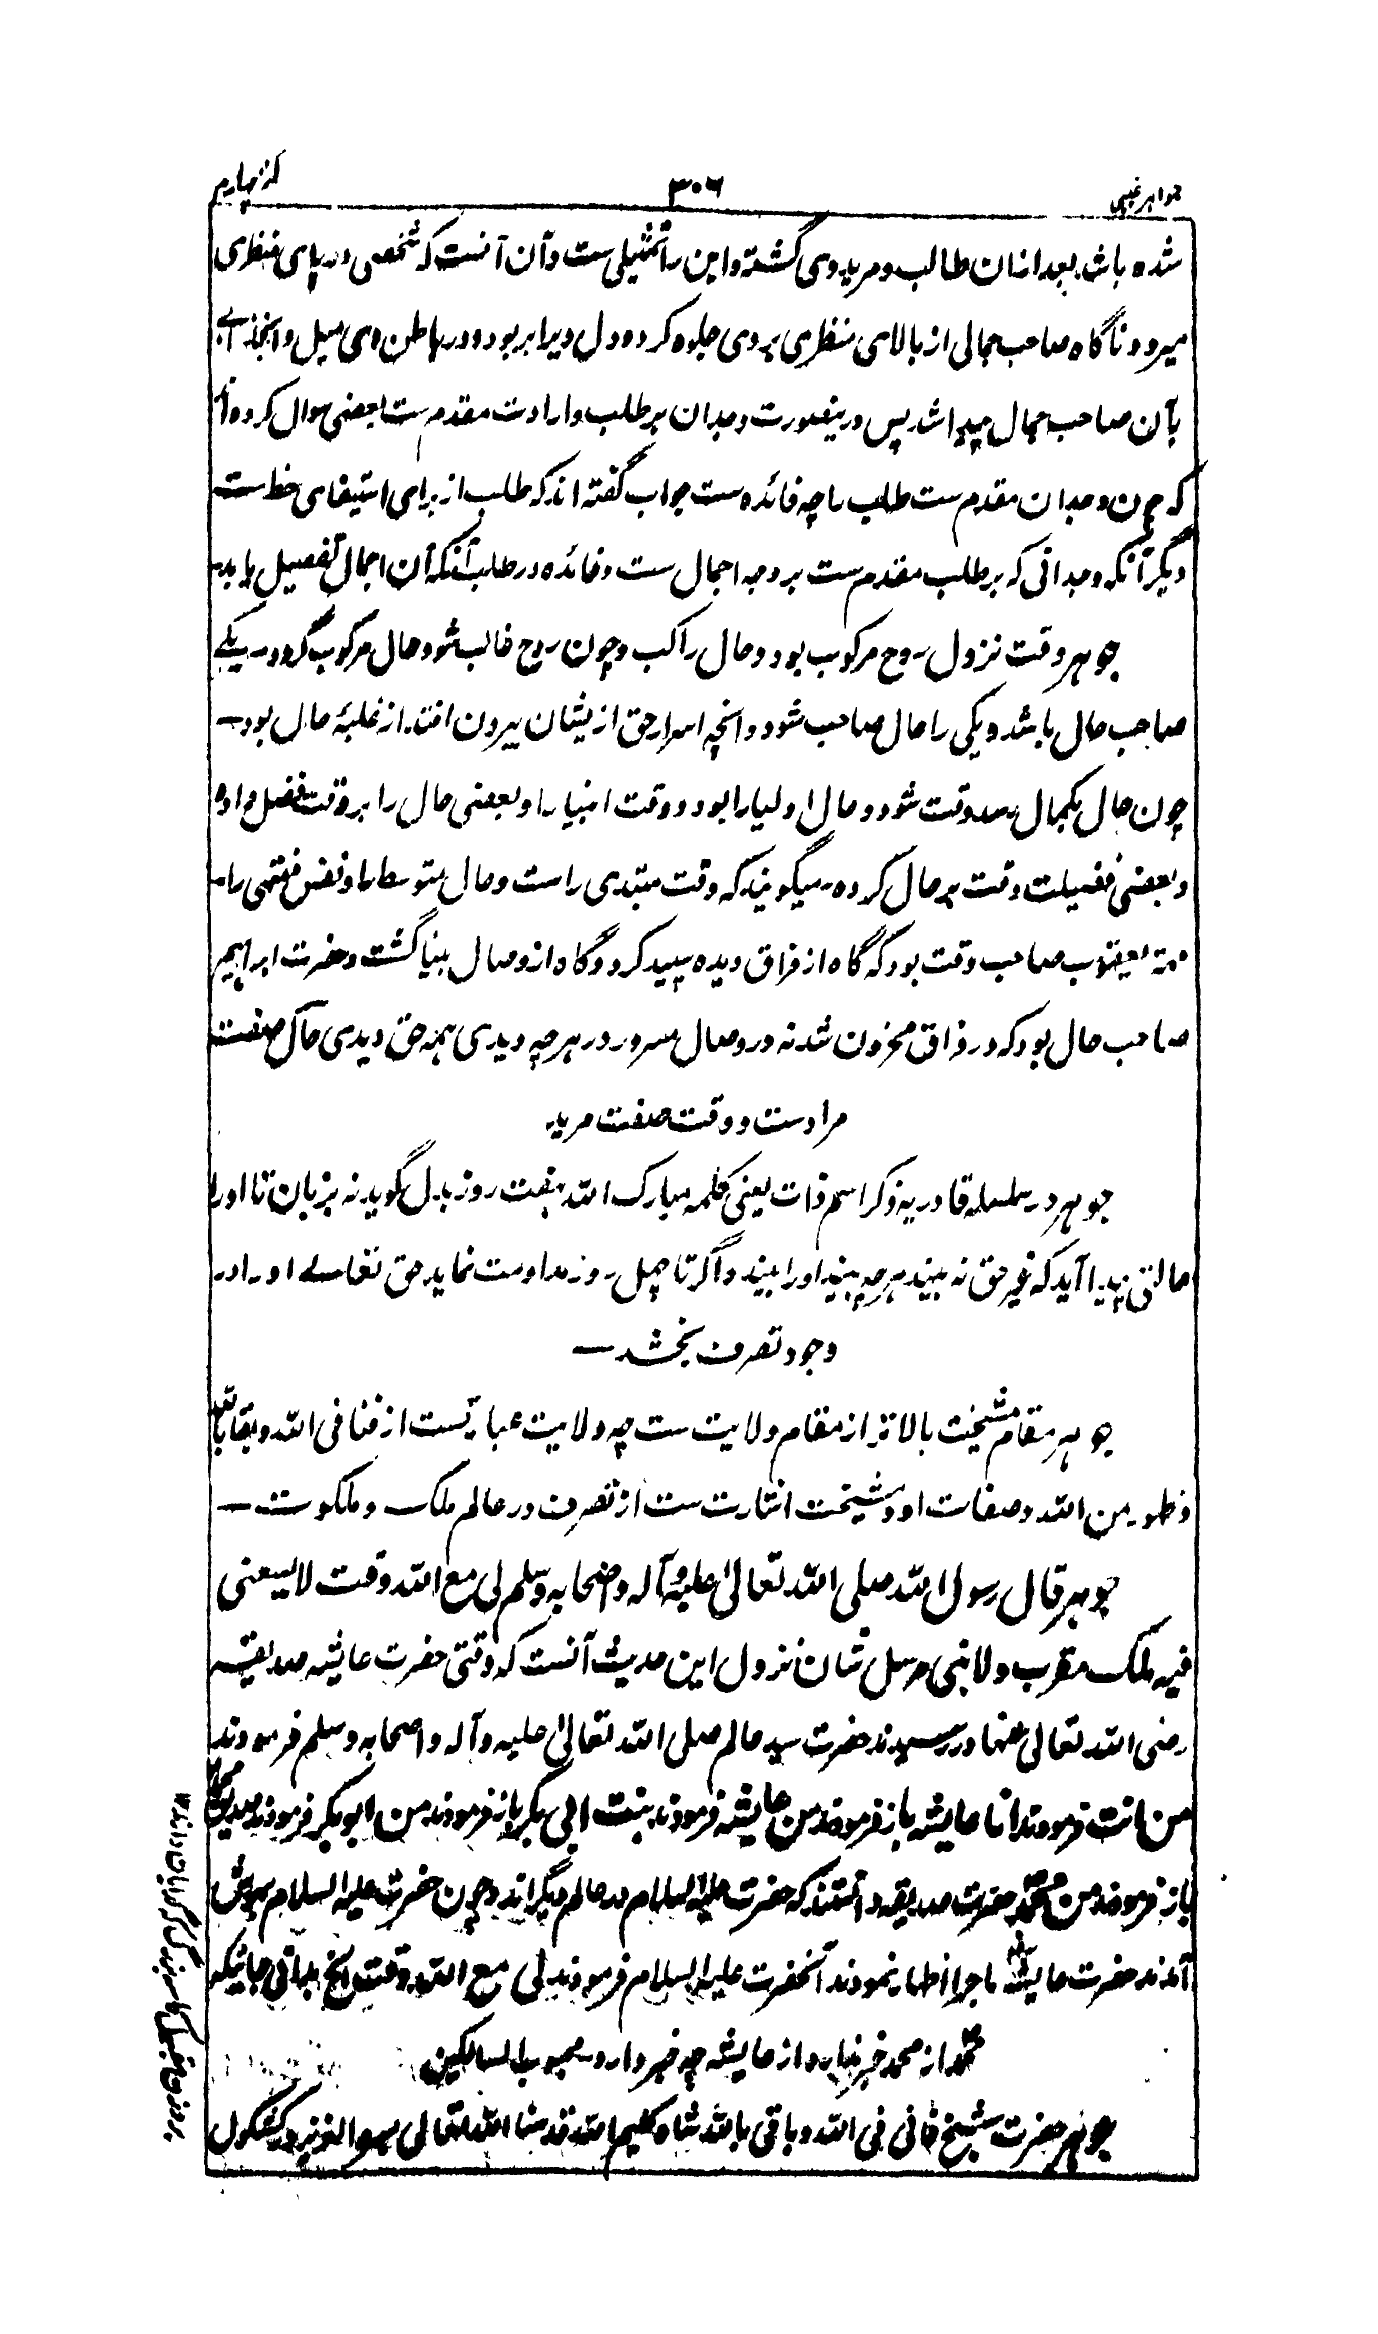 جواهر غیبی
۳۰۶
کنز چهارم
شده باشد بعد ازان طالب و مرید وی گشته و این را تمثیلی ست و آن آنست که شخصی در پای منظری
میرود و ناگاه صاحب جمالی از بالای منظری بر وی جلوه کرده و دل ویرا بر بود و در باطن وی میل و انجذابے
بآن صاحب جمال پیدا شد پس درینصورت وجدان بر طلب و ارادت مقدم ست بعضی سوال کرده اند
که چون وجدان مقدم ست طلب را چه فائده ست جواب گفته اند که طلب از برای استیفای حظ ست
دیگر آنکه وجدانی که بر طلب مقدم ست بر وجه اجمال ست و فائده در طلب آنکه آن اجمال تفصیل یابد
جوهر وقت نزول روح مرکوب بود و حال راکب و چون روح غالب شود حال مرکوب گردد یکے
صاحب حال باشد و یکی را حال صاحب شود و انچه اسرار حق ازیشان بیرون افتد از غلبهٔ حال بود
چون حال بکمال رسد وقت شود و حال اولیا را بود و وقت انبیا را و بعضی حال را بر وقت فضل داده
و بعضی فضیلت وقت بر حال کرده میگویند که وقت مبتدی راست و حال متوسط را و نفس منتهی را
مهتر یعقوب صاحب وقت بود که گاه از فراق دیده سپید کرد و گاه از وصال بینا گشت و حضرت ابراهیم
صاحب حال بود که در فراق محزون شد نه در وصال مسرور در هر چه دیدی همه حق دیدی حال صفت
مرادست و وقت صفت مرید
جوهر در سلسله قادریه ذکر اسم ذات یعنی کلمه مبارک الله هفت روز بدل گوید نه بزبان تا او را
حالتی پیدا آید که غیر حق نه بیند هر چه بیند او را بیند و اگر تا چهل روز مداومت نماید حق تعالے او را در
وجود تصرف بخشد
جوهر مقام مشیخت بالاتر از مقام ولایت ست چه ولایت عبارتست از فنا فی الله و بقا بالله
و ظهور من الله و صفات او و مشیخت اشارت ست از تصرف در عالم ملک و ملکوت
جوهر قال رسول الله صلی الله تعالیٰ علیه و آله و اصحابه وسلم لی مع الله وقت لا یسعنی
فیه ملک مقرب و لا نبی مرسل شان نزول این حدیث آنست که وقتی حضرت عایشه صدیقه
رضی الله تعالی عنها در رسیدند حضرت سید عالم صلی الله تعالیٰ علیه و آله و اصحابه وسلم فرمودند
من انت فرمودند انا عایشه باز فرمودند من عایشه فرمودند بنت ابی بکر باز فرمودند من ابوبکر فرمودند صدیق محمد
باز فرمودند من محمد حضرت صدیقه دانستند که حضرت علیه السلام در عالم دیگر اند و چون حضرت علیه السلام بهوش
آمدند حضرت عایشه ماجرا اظهار نمودند آنحضرت علیه السلام فرمودند لی مع الله وقت الخ بدانی جائیکه
محمد از محمد خبر ندارد از عایشه چه خبر دارد محبوب السالکین
جوهر حضرت شیخ فانی فی الله و باقی بالله شاه کلیم الله قدسنا الله تعالی بسره العزیز در کشکول